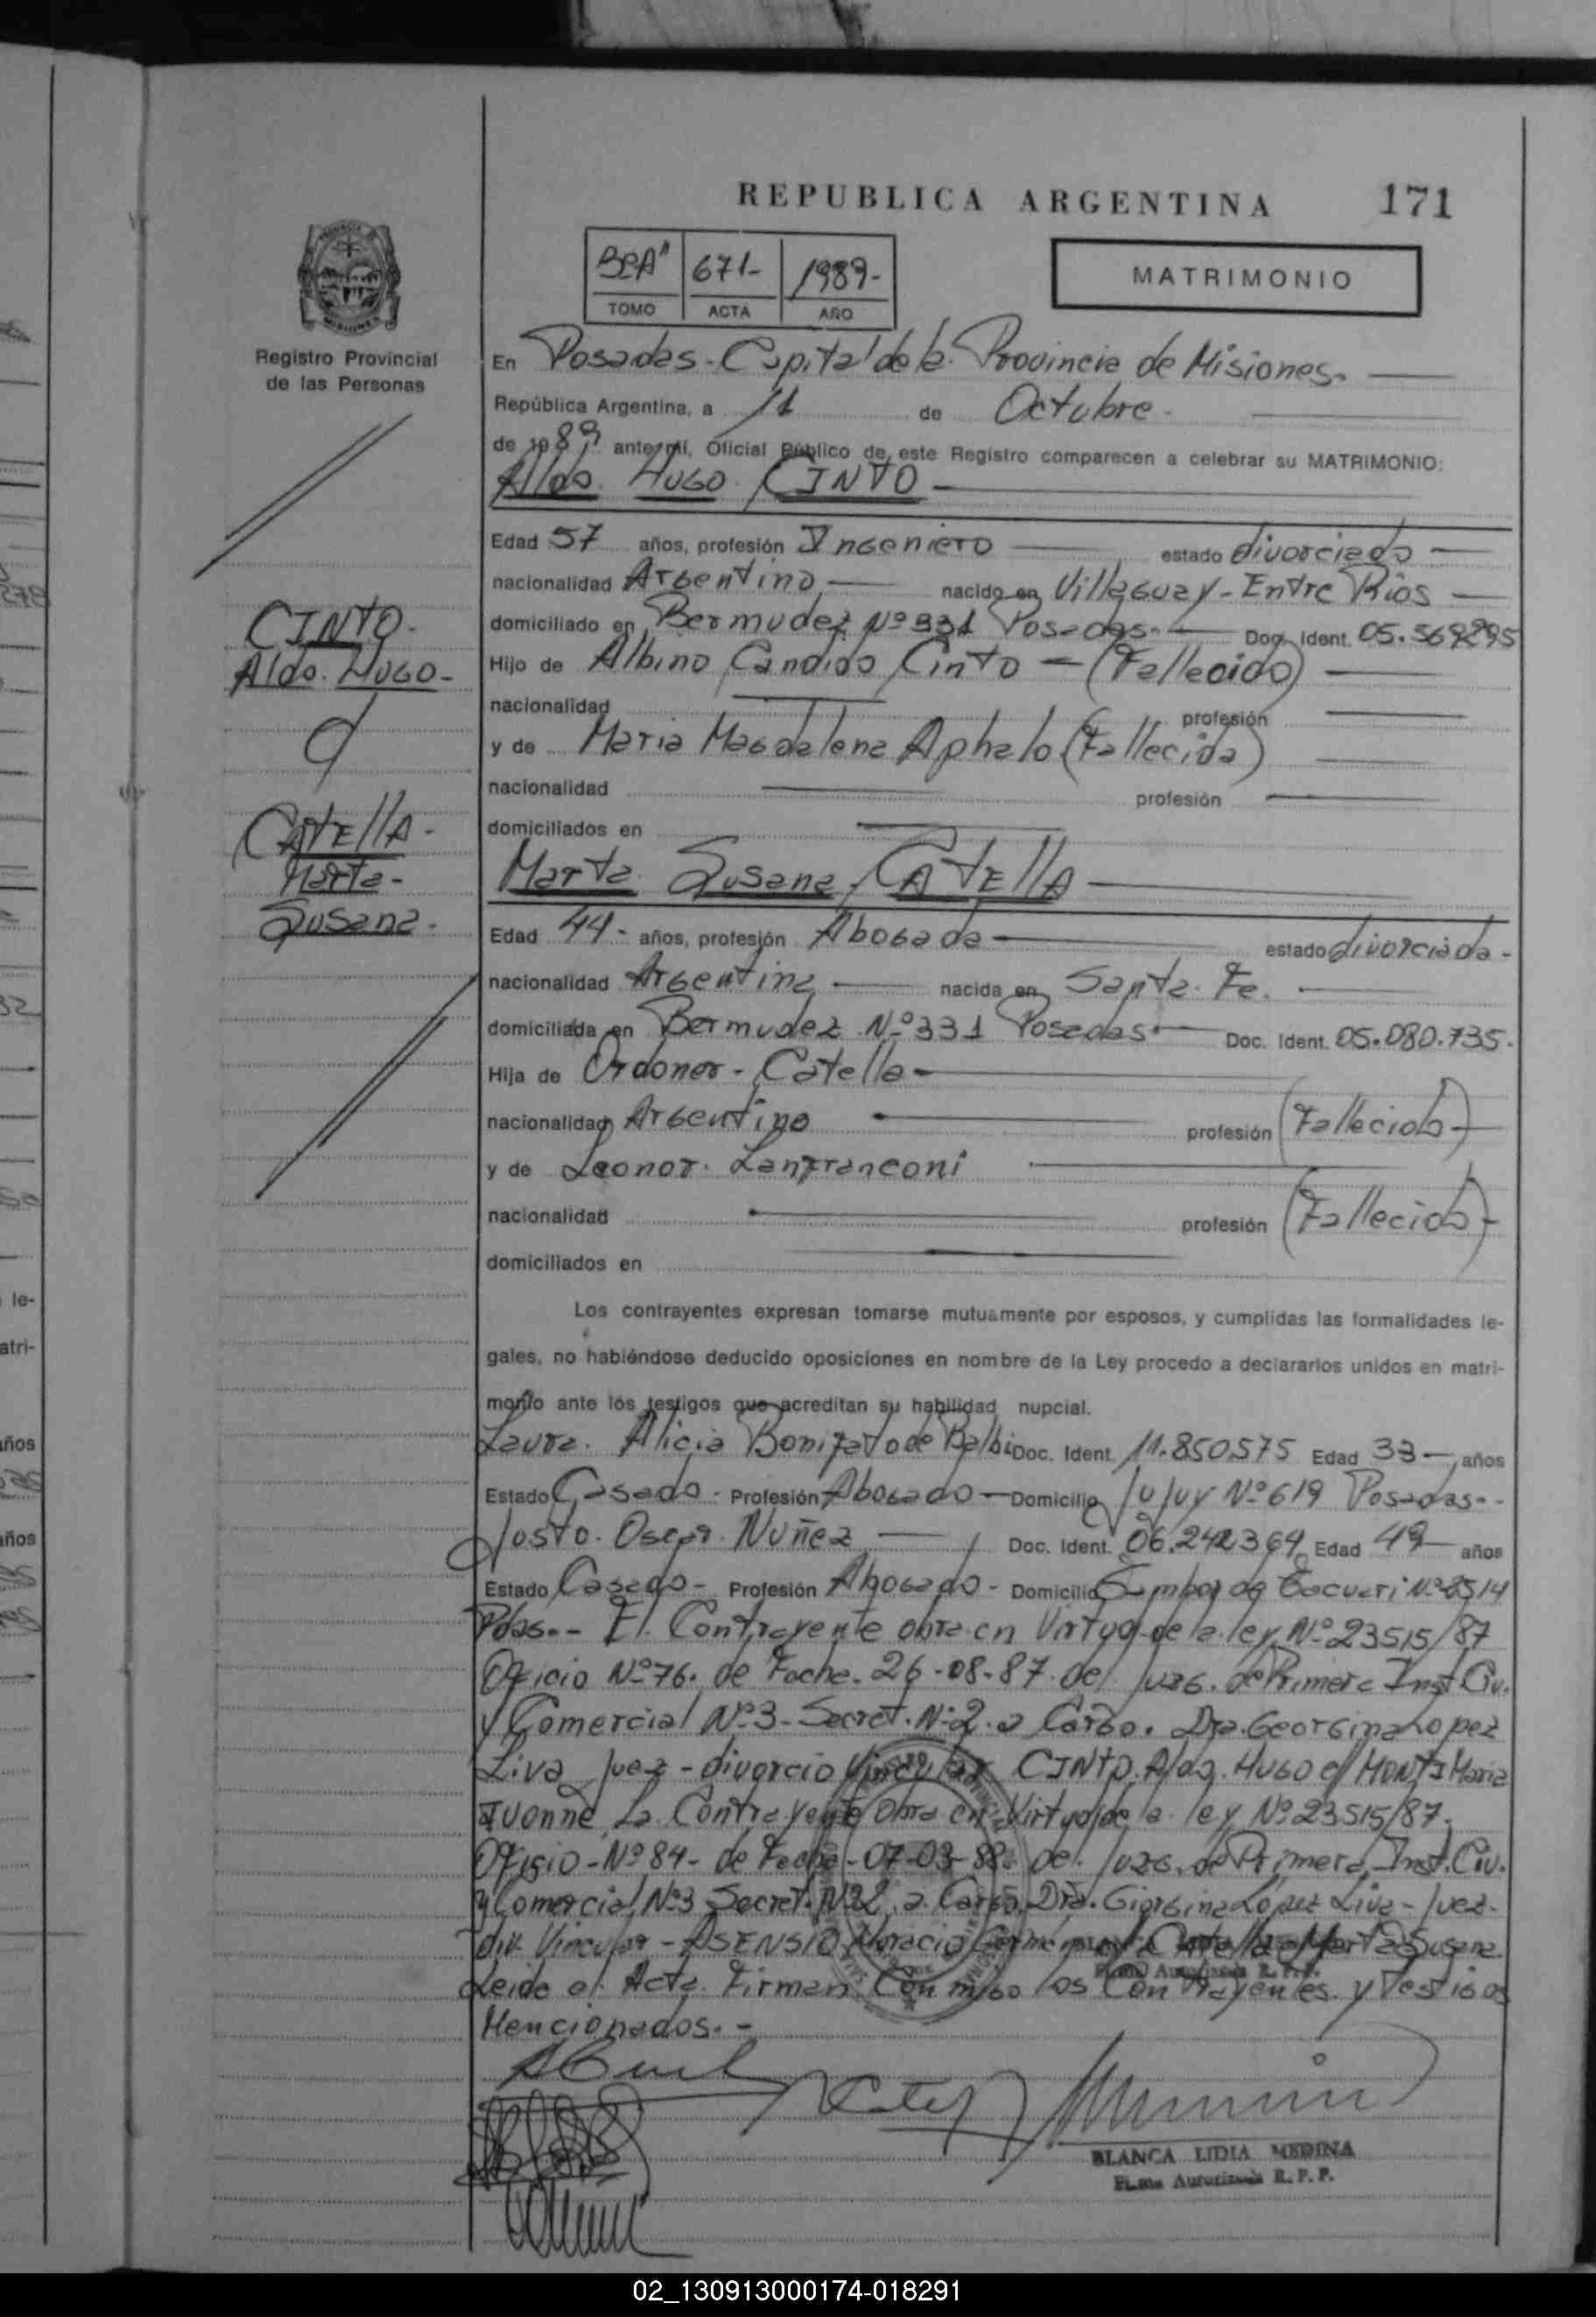 REPUBLICA ARGENTINA 171
671- 1989-
TOMO ACTA AÑO
MATRIMONIO
Registro Provincial
de las Personas
En Posadas - Capital de la Provincia de Misiones.
República Argentina, a 11 de Octubre.
de 1989 ante mí, Oficial Público de este Registro comparecen a celebrar su MATRIMONIO:
Aldo. Hugo. CINTO
Edad 57 años, profesión Ingeniero estado divorciado
nacionalidad Argentino nacido en Villaguay - Entre Rios
domiciliado en Bermudez Nº 331 Posadas. Doc. Ident. 05.569295
CINTO.
Aldo. Hugo-
Hijo de Albino Candido Cinto - (Fallecido)
nacionalidad profesión
y de Maria Magdalena Aphalo (Fallecida)
nacionalidad profesión
domiciliados en
CATELLA-
Marta-
Susana-
Marta Susana CATELLA
Edad 44- años, profesión Abogada estado divorciada-
nacionalidad Argentina nacida en Santa Fe.
domiciliada en Bermudez Nº 331 Posadas Doc. Ident. 05.080.735.
Hija de Ordoner - Catella
nacionalidad Argentino profesión (Fallecido)
y de Leonor. Lanfranconi
nacionalidad profesión (Fallecido)
domiciliados en
Los contrayentes expresan tomarse mutuamente por esposos, y cumplidas las formalidades le-
gales, no habiéndose deducido oposiciones en nombre de la Ley procedo a declararlos unidos en matri-
monio ante los testigos que acreditan su habilidad nupcial.
Laura. Alicia Bonifato de Balbi Doc. Ident. 11.850575 Edad 33 años
Estado Casado - Profesión Abogado - Domicilio Jujuy Nº 619 Posadas.-
Justo. Oscar. Nuñez Doc. Ident. 06.242364 Edad 49 años
Estado Casado - Profesión Abogado - Domicilio Tambor de Tacuari Nº 2514
Pdas.- El Contrayente obra en Virtud de la ley Nº 23515/87
Oficio Nº 76. de Fecha. 26-08-87. del Juzg. de Primera Inst. Civ.
y Comercial Nº 3 - Secret. Nº 2. a Cargo. Dra. Georgina Lopez
Liva Juez - divorcio Vincular CINTO. Aldo. Hugo c/ MONTI Maria
Ivonne, La Contrayente Obra en Virtud de la ley Nº 23515/87.
Oficio - Nº 84 - de Fecha - 07-03-88 - del. Juzg. de Primera Inst. Civ.
y Comercial Nº 3 Secret. Nº 2. a Cargo. Dra. Giorgina Lopez Liva - Juez.
div. Vincular - ASENSIO Horacio Catella Marta Susana.
Leida el Acta. Firman Conmigo los Contrayentes y Testigos
Mencionados.-
BLANCA LIDIA MEDINA
Firma Autorizada R. P. P.
02_130913000174-018291